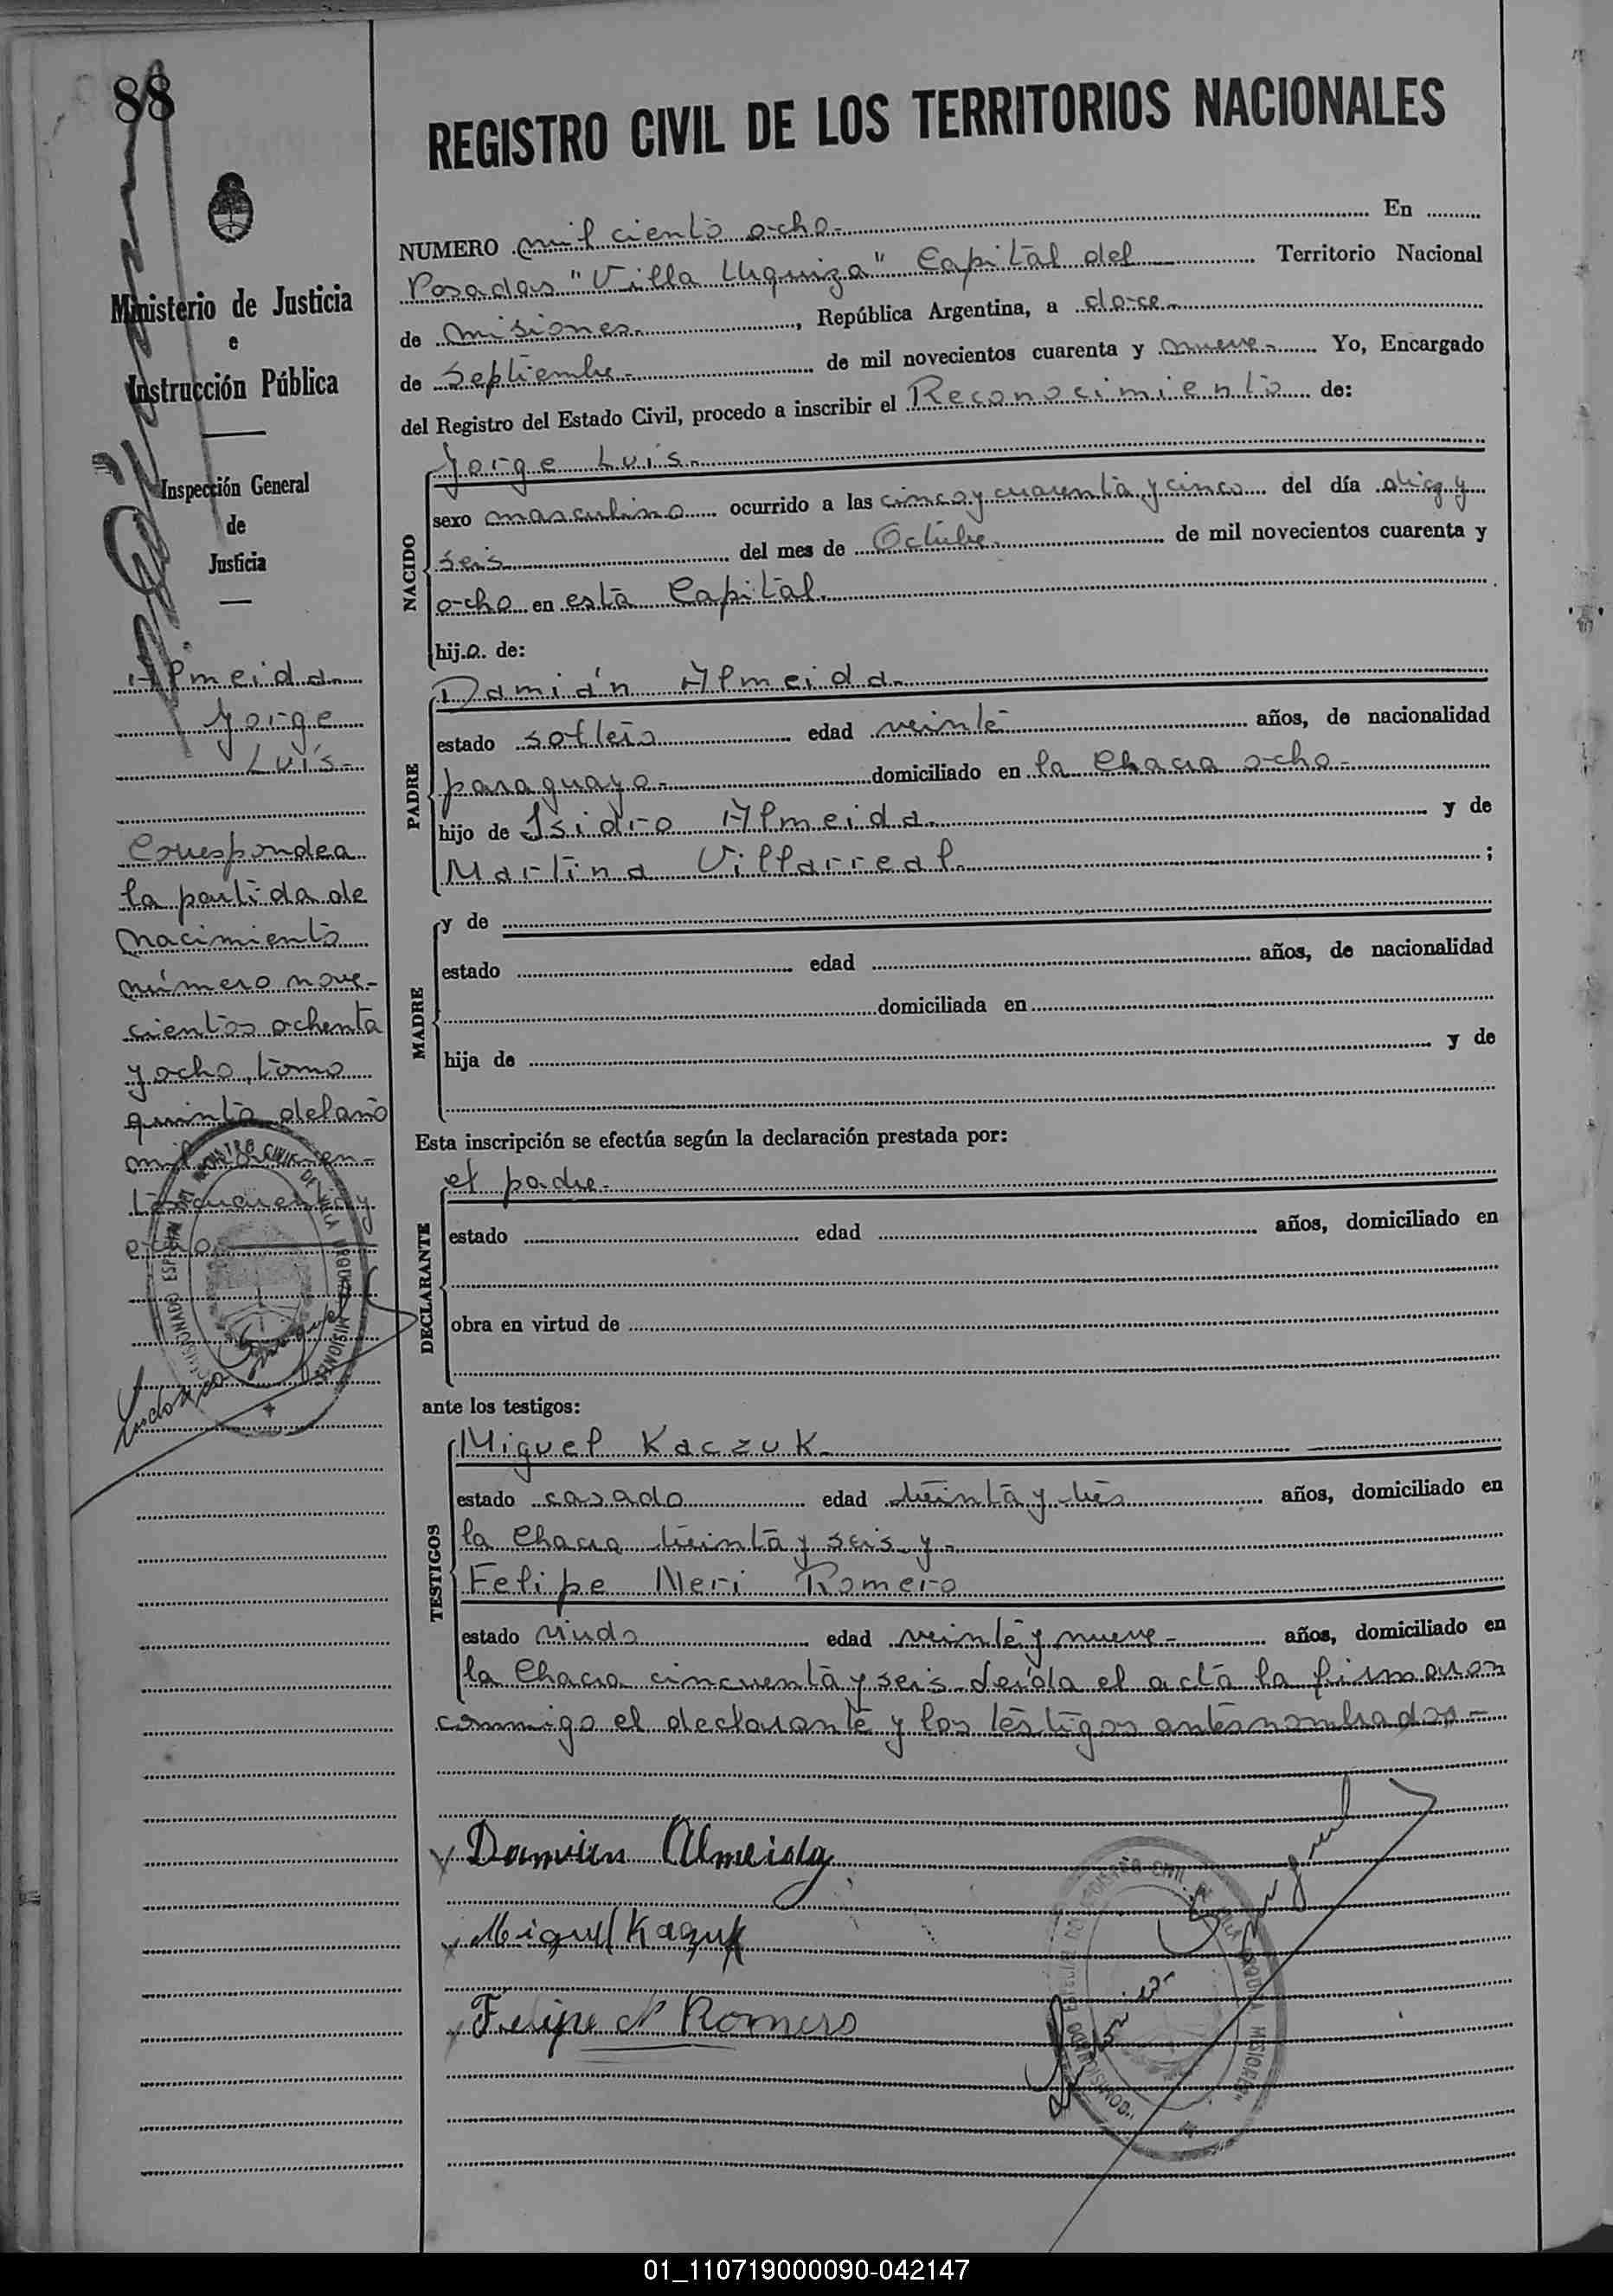 88
Ministerio de Justicia
e
Instrucción Pública
Inspección General
de
Justicia
Almeida
Jorge
Luis-
Corresponde a
la partida de
nacimiento
número nove-
cientos ochenta
y ocho, tomo
quinto del año
mil novecien-
tos cuarenta y
ocho
REGISTRO CIVIL DE LOS TERRITORIOS NACIONALES
NUMERO mil ciento ocho- En
Posadas "Villa Urquiza" Capital del Territorio Nacional
de Misiones, República Argentina, a doce
de Septiembre- de mil novecientos cuarenta y nueve- Yo, Encargado
del Registro del Estado Civil, procedo a inscribir el Reconocimiento de:
NACIDO
Jorge Luis-
sexo masculino ocurrido a las cinco y cuarenta y cinco del día diez y
seis del mes de Octubre de mil novecientos cuarenta y
ocho en esta Capital.
hij.o. de:
PADRE
Damián Almeida
estado soltero edad veinte años, de nacionalidad
paraguayo- domiciliado en la Chacra ocho-
hijo de Isidro Almeida y de
Martina Villarreal ;
MADRE
y de
estado edad años, de nacionalidad
domiciliada en
hija de y de
Esta inscripción se efectúa según la declaración prestada por:
DECLARANTE
el padre-
estado edad años, domiciliado en
obra en virtud de
ante los testigos:
TESTIGOS
Miguel Kaczuk-
estado casado edad treinta y tres años, domiciliado en
la Chacra treinta y seis y-
Felipe Neri Romero
estado viudo edad veinte y nueve- años, domiciliado en
la Chacra cincuenta y seis-Leída el acta la firmaron
conmigo el declarante y los testigos antes nombrados-
Damian Almeida
Miguel Kaczuk
Felipe N Romero
REGISTRO CIVIL DE VILLA URQUIZA MISIONES
01_110719000090-042147